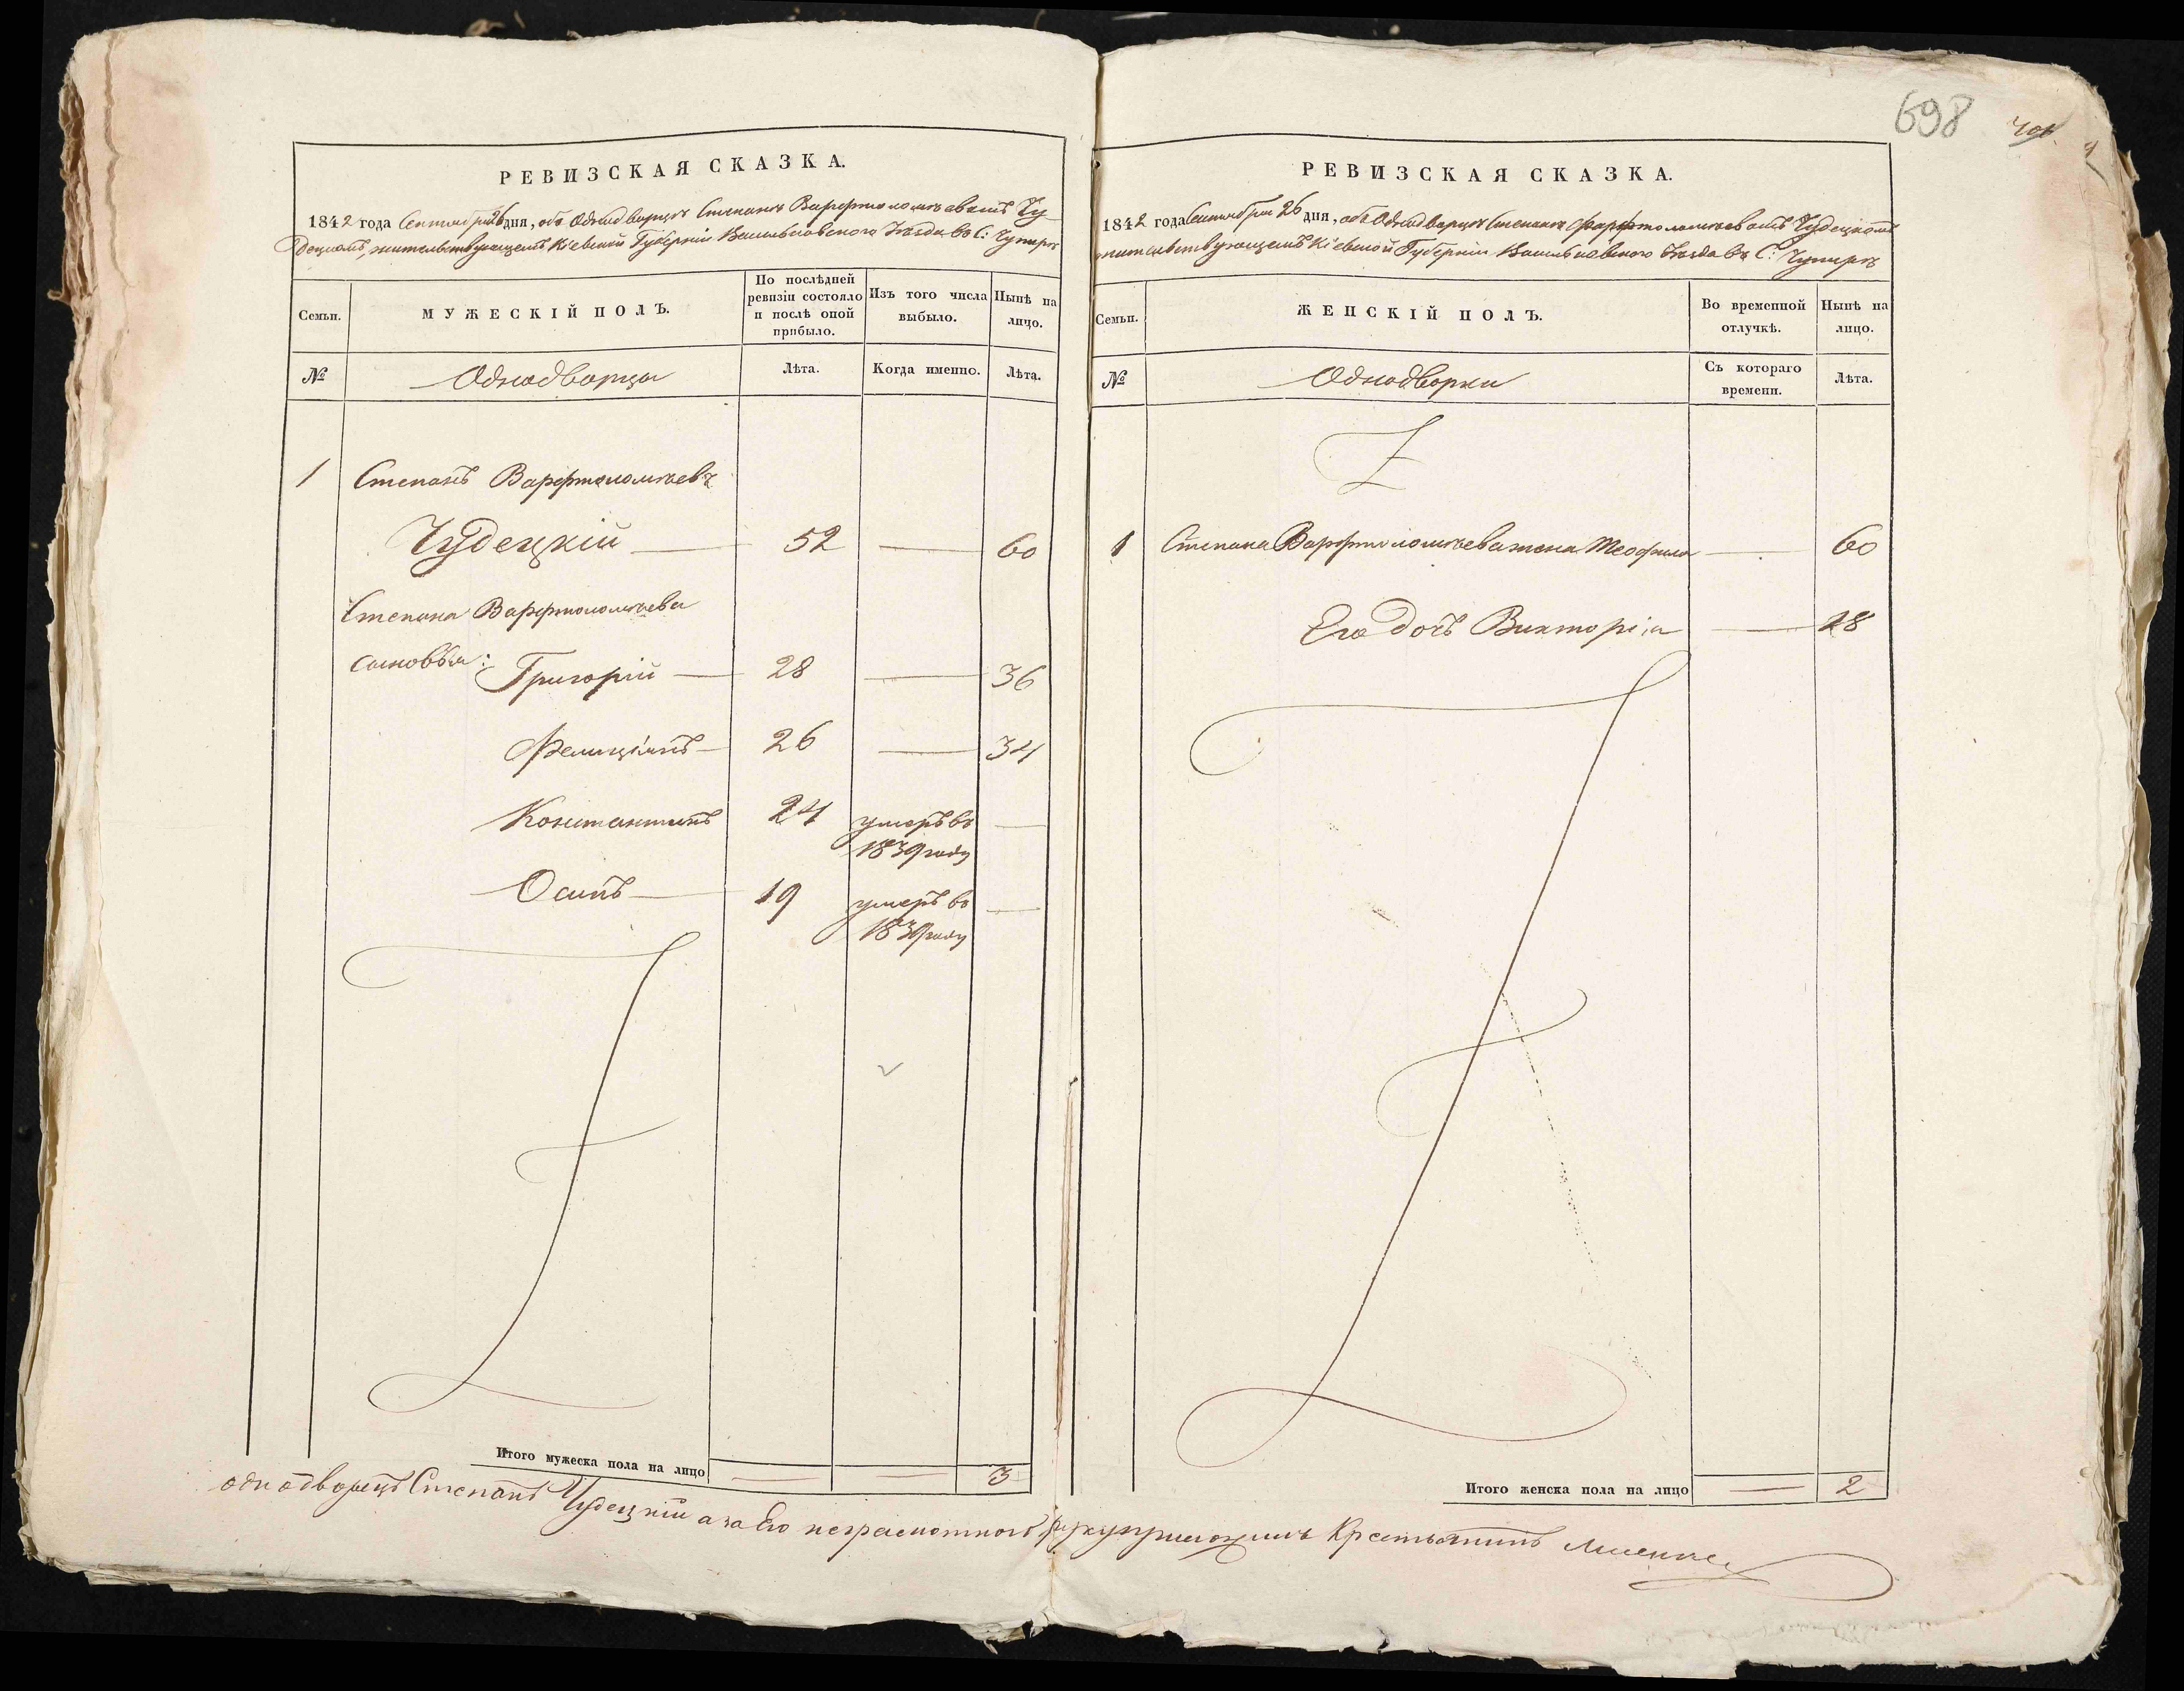 698
РЕВИЗСКАЯ СКАЗКА.
1842 года Сентября 26 дня, объ Однодворцѣ Степанѣ Варфтоломѣевомъ Чу-
децкомъ, жительствующемъ Кіевской Губерніи Васильковскаго Уѣзда въ С: Чупирѣ
Семьи.
МУЖЕСКІЙ ПОЛЪ.
По послѣдней ревизіи состояло и послѣ оной прибыло.
Изъ того числа выбыло.
Нынѣ на лицо.
№
Однодворцы
Лѣта.
Когда именно.
Лѣта.
1 Степанъ Варфтоломѣевъ
Чудецкій — 52 — 60
Степана Варфтоломѣева
сыновья: Григорій — 28 — 36
Фелиціянъ — 26 — 34
Константинъ 24 умеръ въ —
1839 году
Осипъ — 19 умеръ въ —
1839 году
Итого мужеска пола на лицо — — 3
РЕВИЗСКАЯ СКАЗКА.
1842 года Сентября 26 дня, объ Однодворцѣ Степанѣ Фарфтоломѣевомъ Чудецкомъ
жительствующемъ Кіевской Губерніи Васильковского Уѣзда въ С: Чупирѣ
Семьи.
ЖЕНСКІЙ ПОЛЪ.
Во временной отлучкѣ.
Нынѣ на лицо.
№
Однодворки
Съ котораго времени.
Лѣта.
1 Степана Варфтоломѣева жена Теофила — 60
Его дочь Викторія — 18
Итого женска пола на лицо — 2
однодворецъ Степанъ Чудецкій а за Его неграмотного руку приложилъ Крестьянинъ